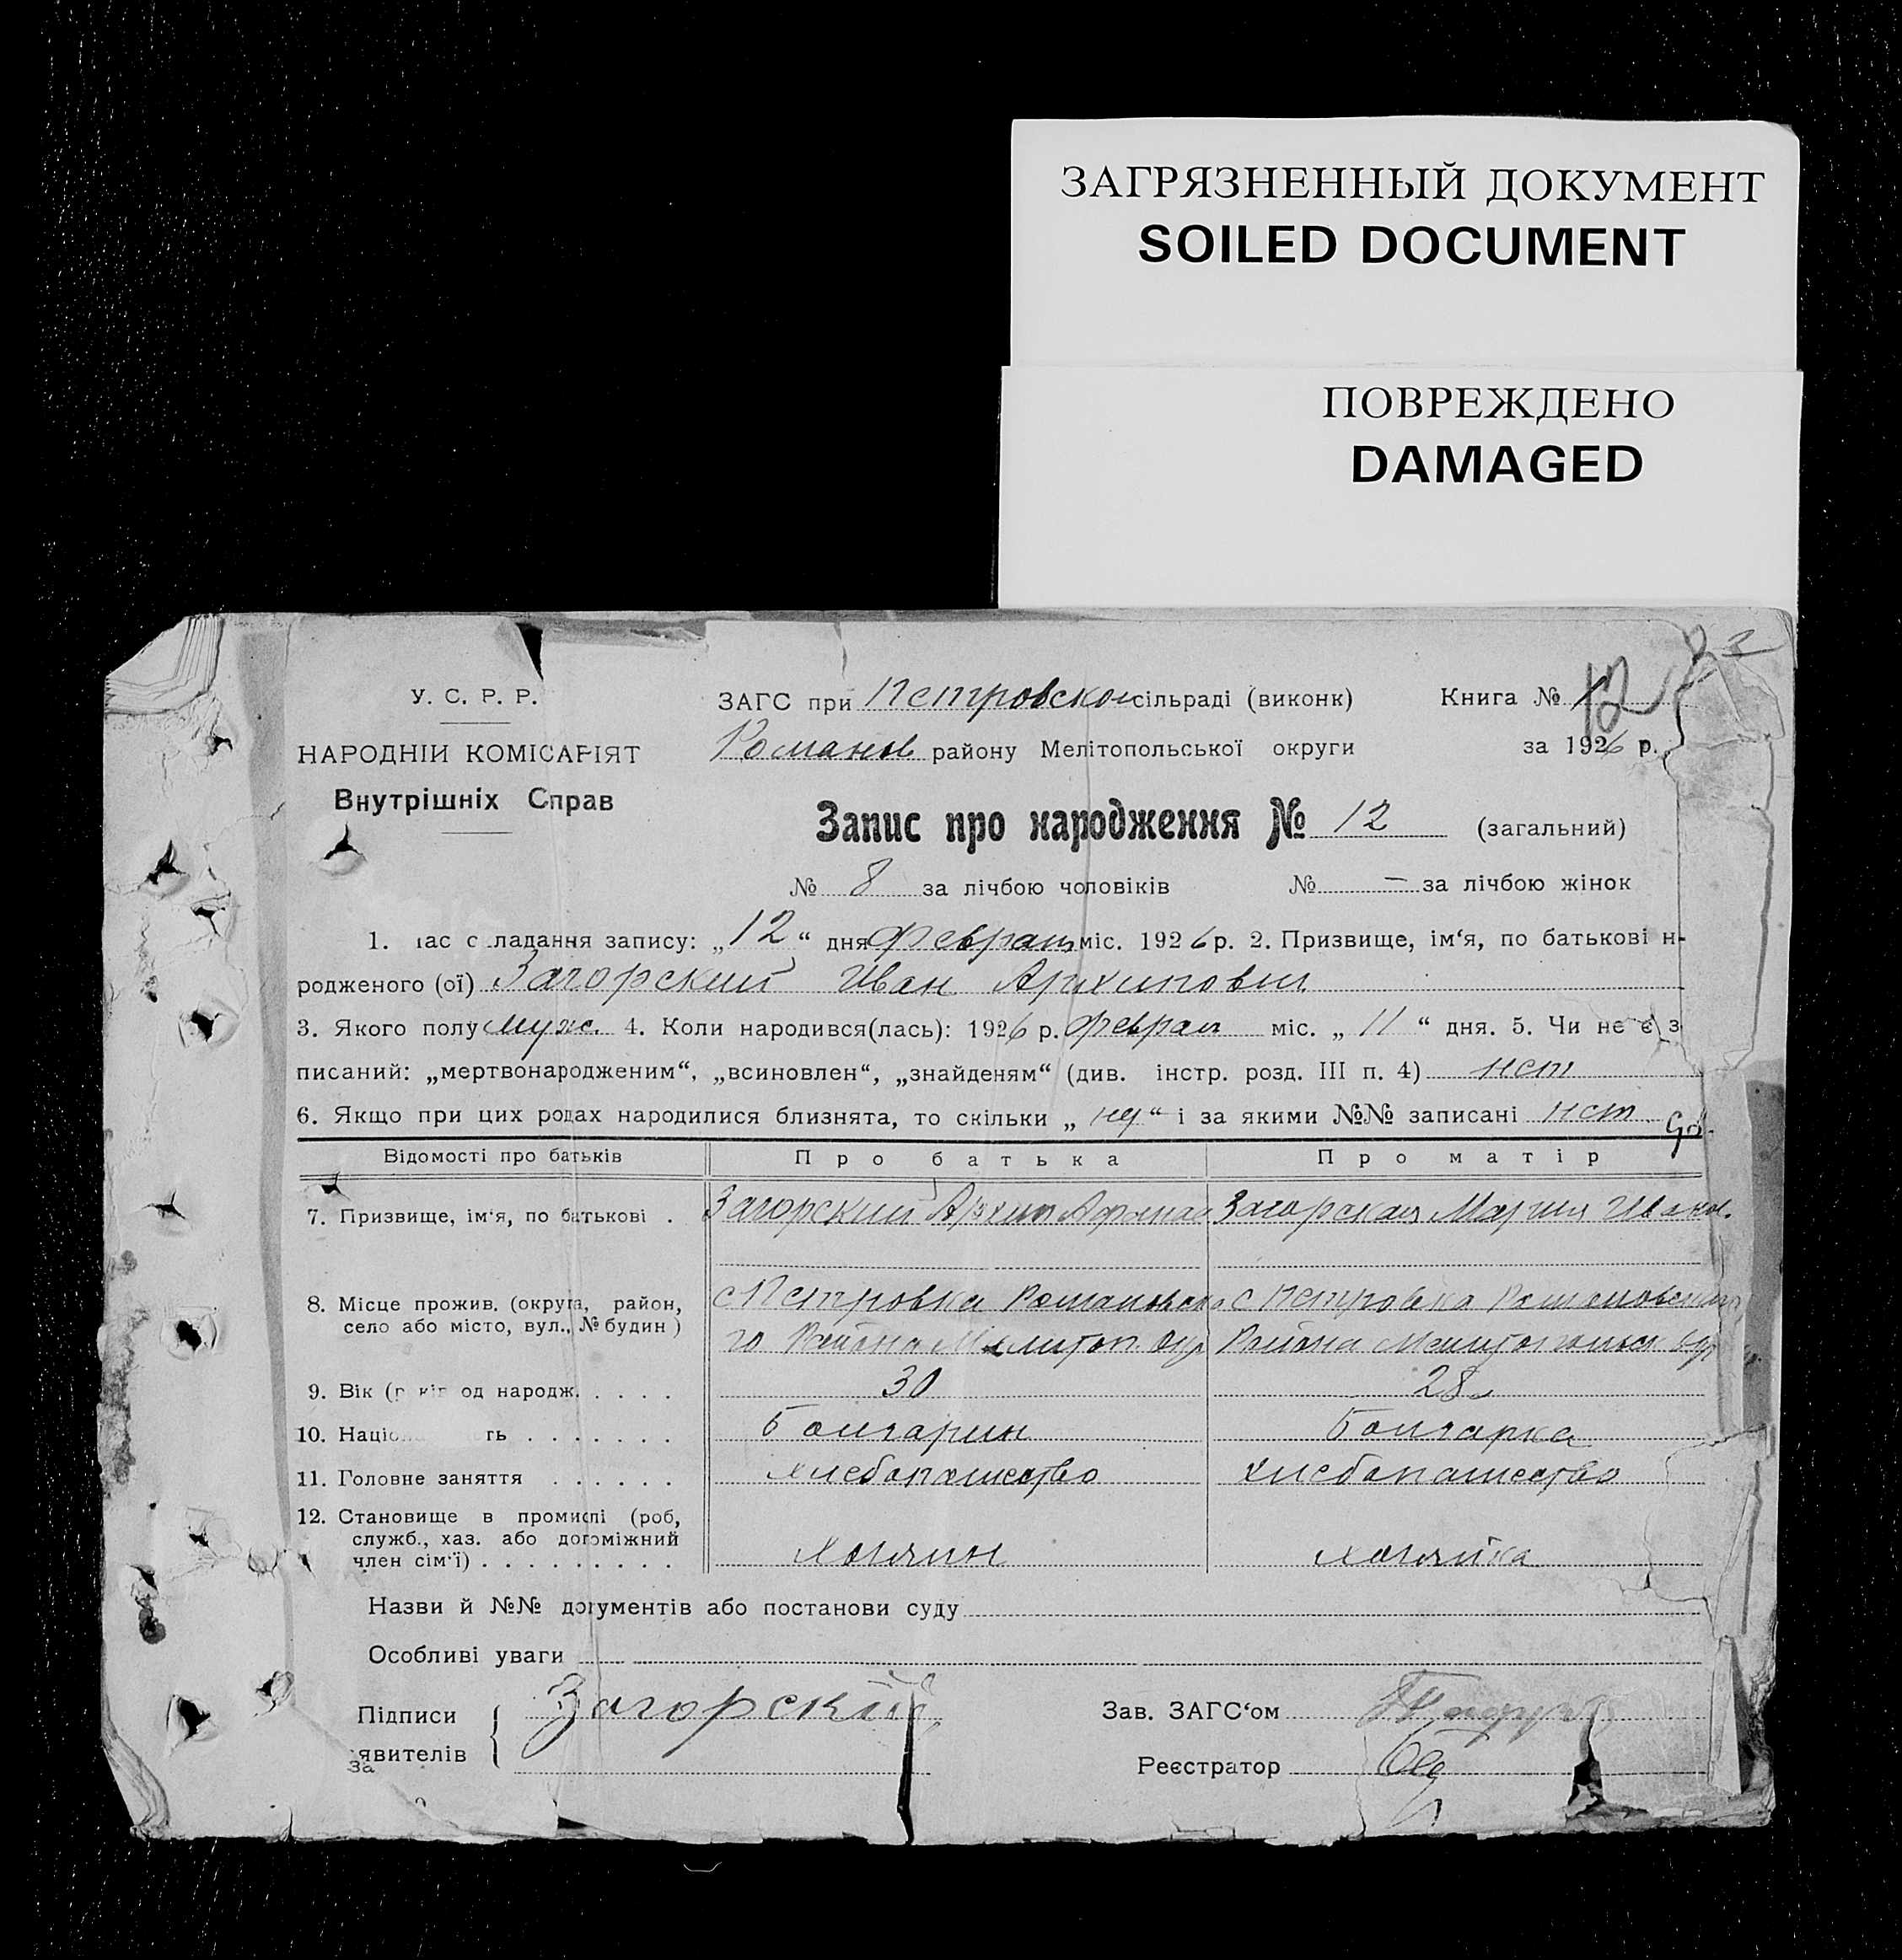 ЗАГРЯЗНЕННЫЙ ДОКУМЕНТ
SOILED DOCUMENT
ПОВРЕЖДЕНО
DAMAGED
У. С. Р. Р.
НАРОДНІЙ КОМІСАРІЯТ
Внутрішніх Справ
ЗАГС при Петровской сільраді (виконк) Книга № 12
Романов району Мелітопольської округи за 1926 р.
Запис про народження № 12 (загальний)
№ 8 за лічбою чоловіків № – за лічбою жінок
1. час складання запису: „12“ дня Февраля міс. 1926 р. 2. Призвище, ім‘я, по батькові н-
родженого (ої) Загорский Иван Архипович
3. Якого полу муж. 4. Коли народився(лась): 1926 р. Феврал міс. „11“ дня. 5. Чи не є з
писаний: „мертвонародженим“, „всиновлен“, „знайденям“ (див. інстр. розд. III п. 4) нет
6. Якщо при цих родах народилися близнята, то скільки „ “ і за якими №№ записані нет
Відомості про батьків Про батька Про матір
7. Призвище, ім‘я, по батькові . Загорский Архип Афанас Загорская Мария Иванов.
8. Місце прожив. (округа, район, с Петровка Романовско с Петровка Романовского
село або місто, вул., № будин) го Района Мелитоп. окр Района Мелитопольск окр
9. Вік (р ків од народж. . . . . 30 28
10. Націо ть . . . . . . . Болгарин Болгарка
11. Головне заняття . . . . . . хлебопашество хлебопашество
12. Становище в промислі (роб,
служб., хаз. або допоміжний
член сім‘ї) . . . . . . . . . Хозяин хозяйка
Назви й №№ документів або постанови суду
Особливі уваги
Підписи Загорский Зав. ЗАГС‘ом
заявителів Реєстратор